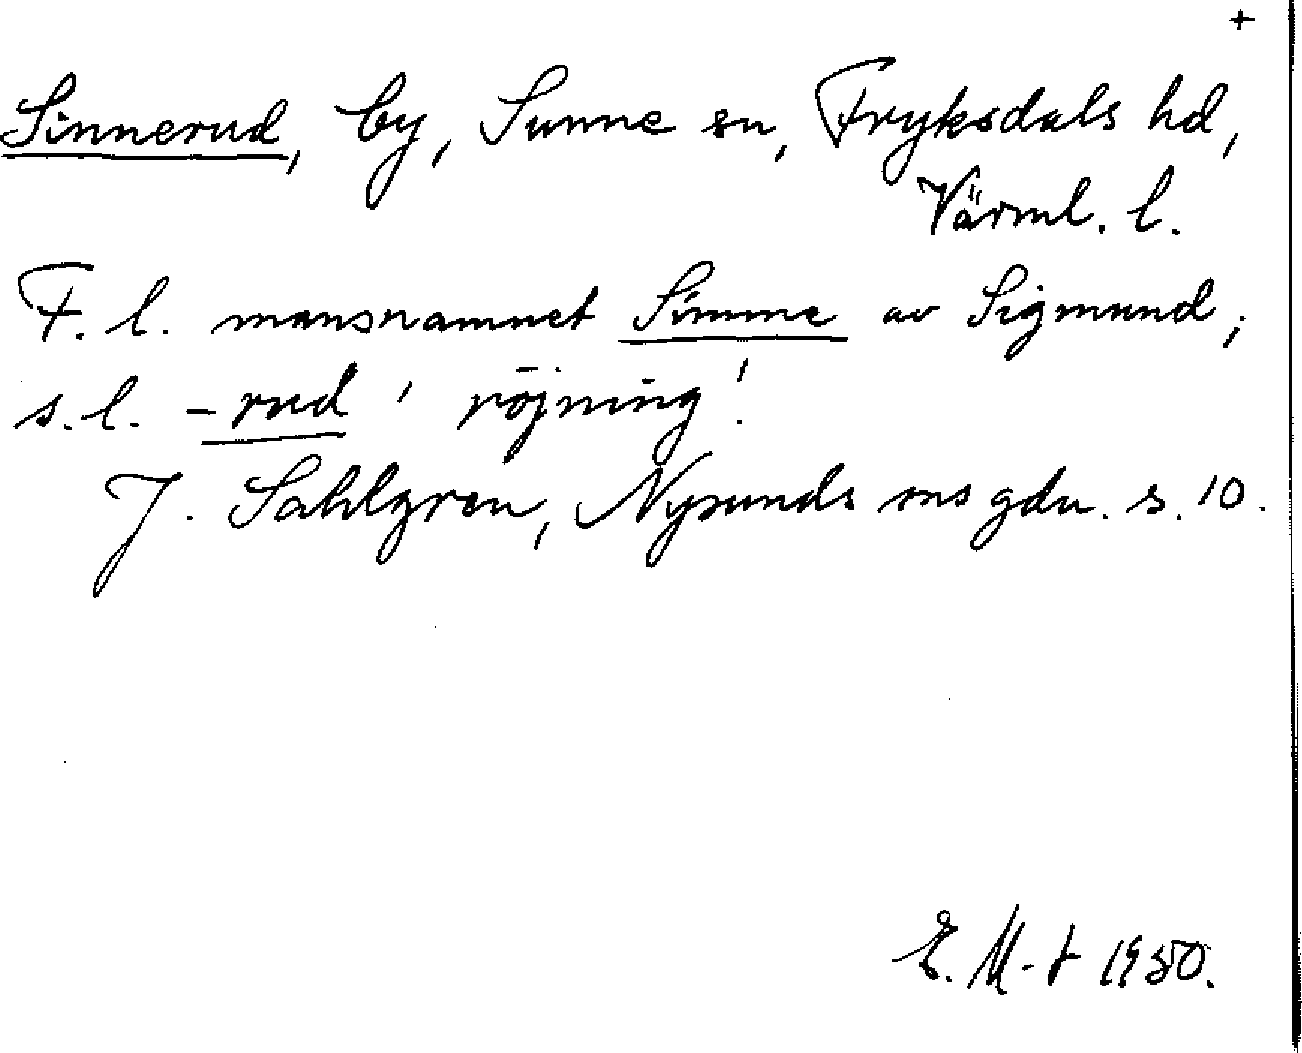 +
Sinnerud, by, Sunne sn, Fryksdals hd,
Värml. l.
F. l. mansnamnet Simme av Sigmund;
s. l. -rud 'röjning'.
J. Sahlgren, Nysunds sns gdn. s. 10.
E. M-t 1950.